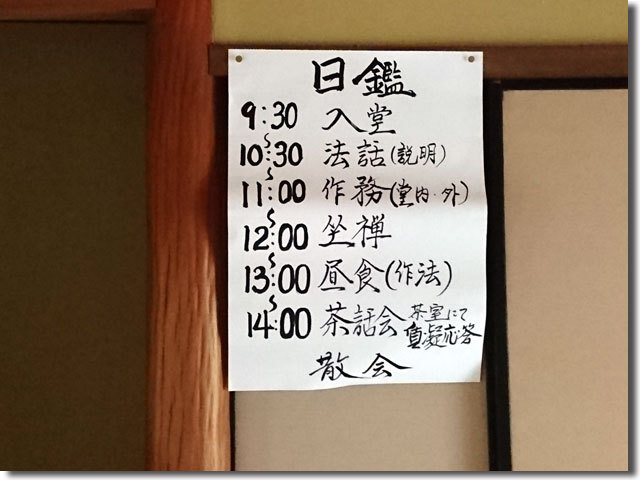 日鑑
9:30 入堂
〜
10:30 法話(説明)
〜
11:00 作務(堂内・外)
〜
12:00 坐禅
〜
13:00 昼食(作法)
〜
14:00 茶話会 茶室にて
応答
散会